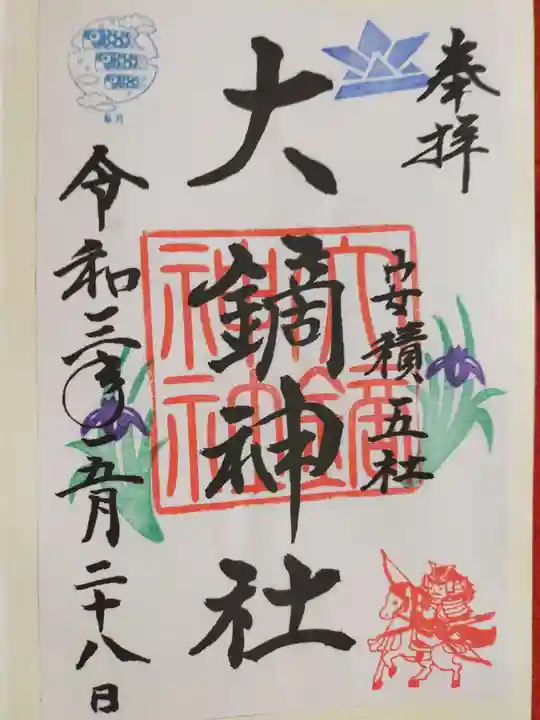 奉拝
安積五社
大鏑神社
令和三年五月二十八日
皐月